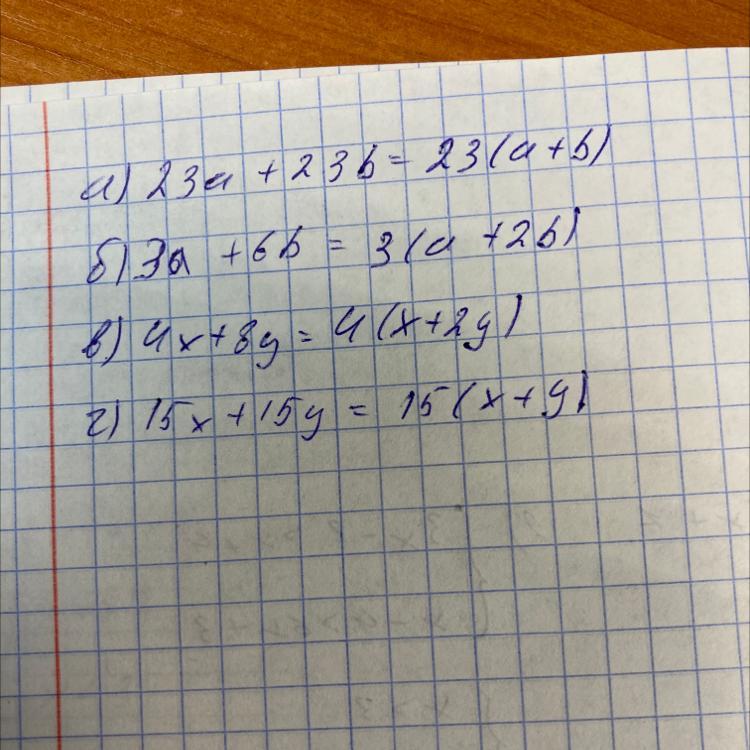 а) 23a + 23b = 23(a+b)
б) 3a + 6b = 3(a + 2b)
в) 4x+8y = 4(x+2y)
г) 15x+15y = 15(x+y)